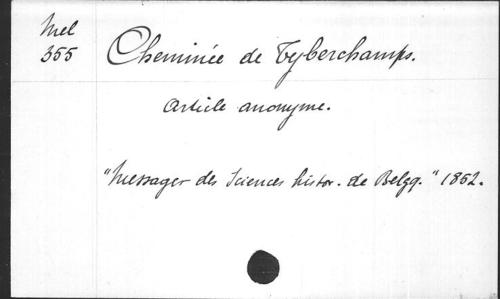 Mel
355
Cheminée de Tyberchamps.
Article anonyme.
"Messager des Sciences histor. de Belgq." 1852.